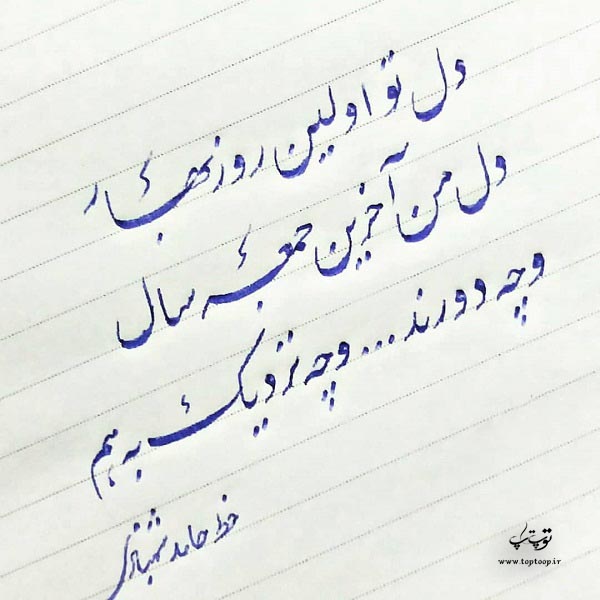 دل تو اولین روز بهار
دل من آخرین جمعهٔ سال
و چه دورند... و چه نزدیک به هم
خط حامد شهبازی
توپ تاپ
www.toptoop.ir